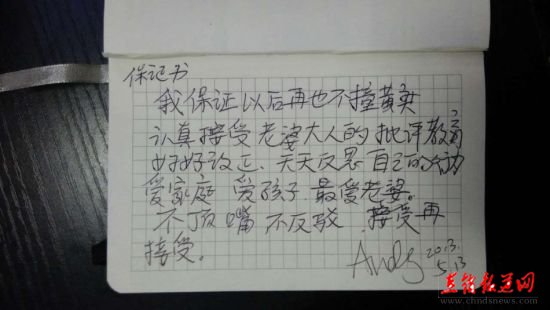 保证书
我保证以后再也不撞黄
认真接受老婆大人的批评教育
好好改正、天天反思自己的
爱家庭 爱孩子 最爱老婆。
不顶嘴 不反驳 接受再
接受。
Andy 2013.
5.13
直销报道网
www.chndsnews.com